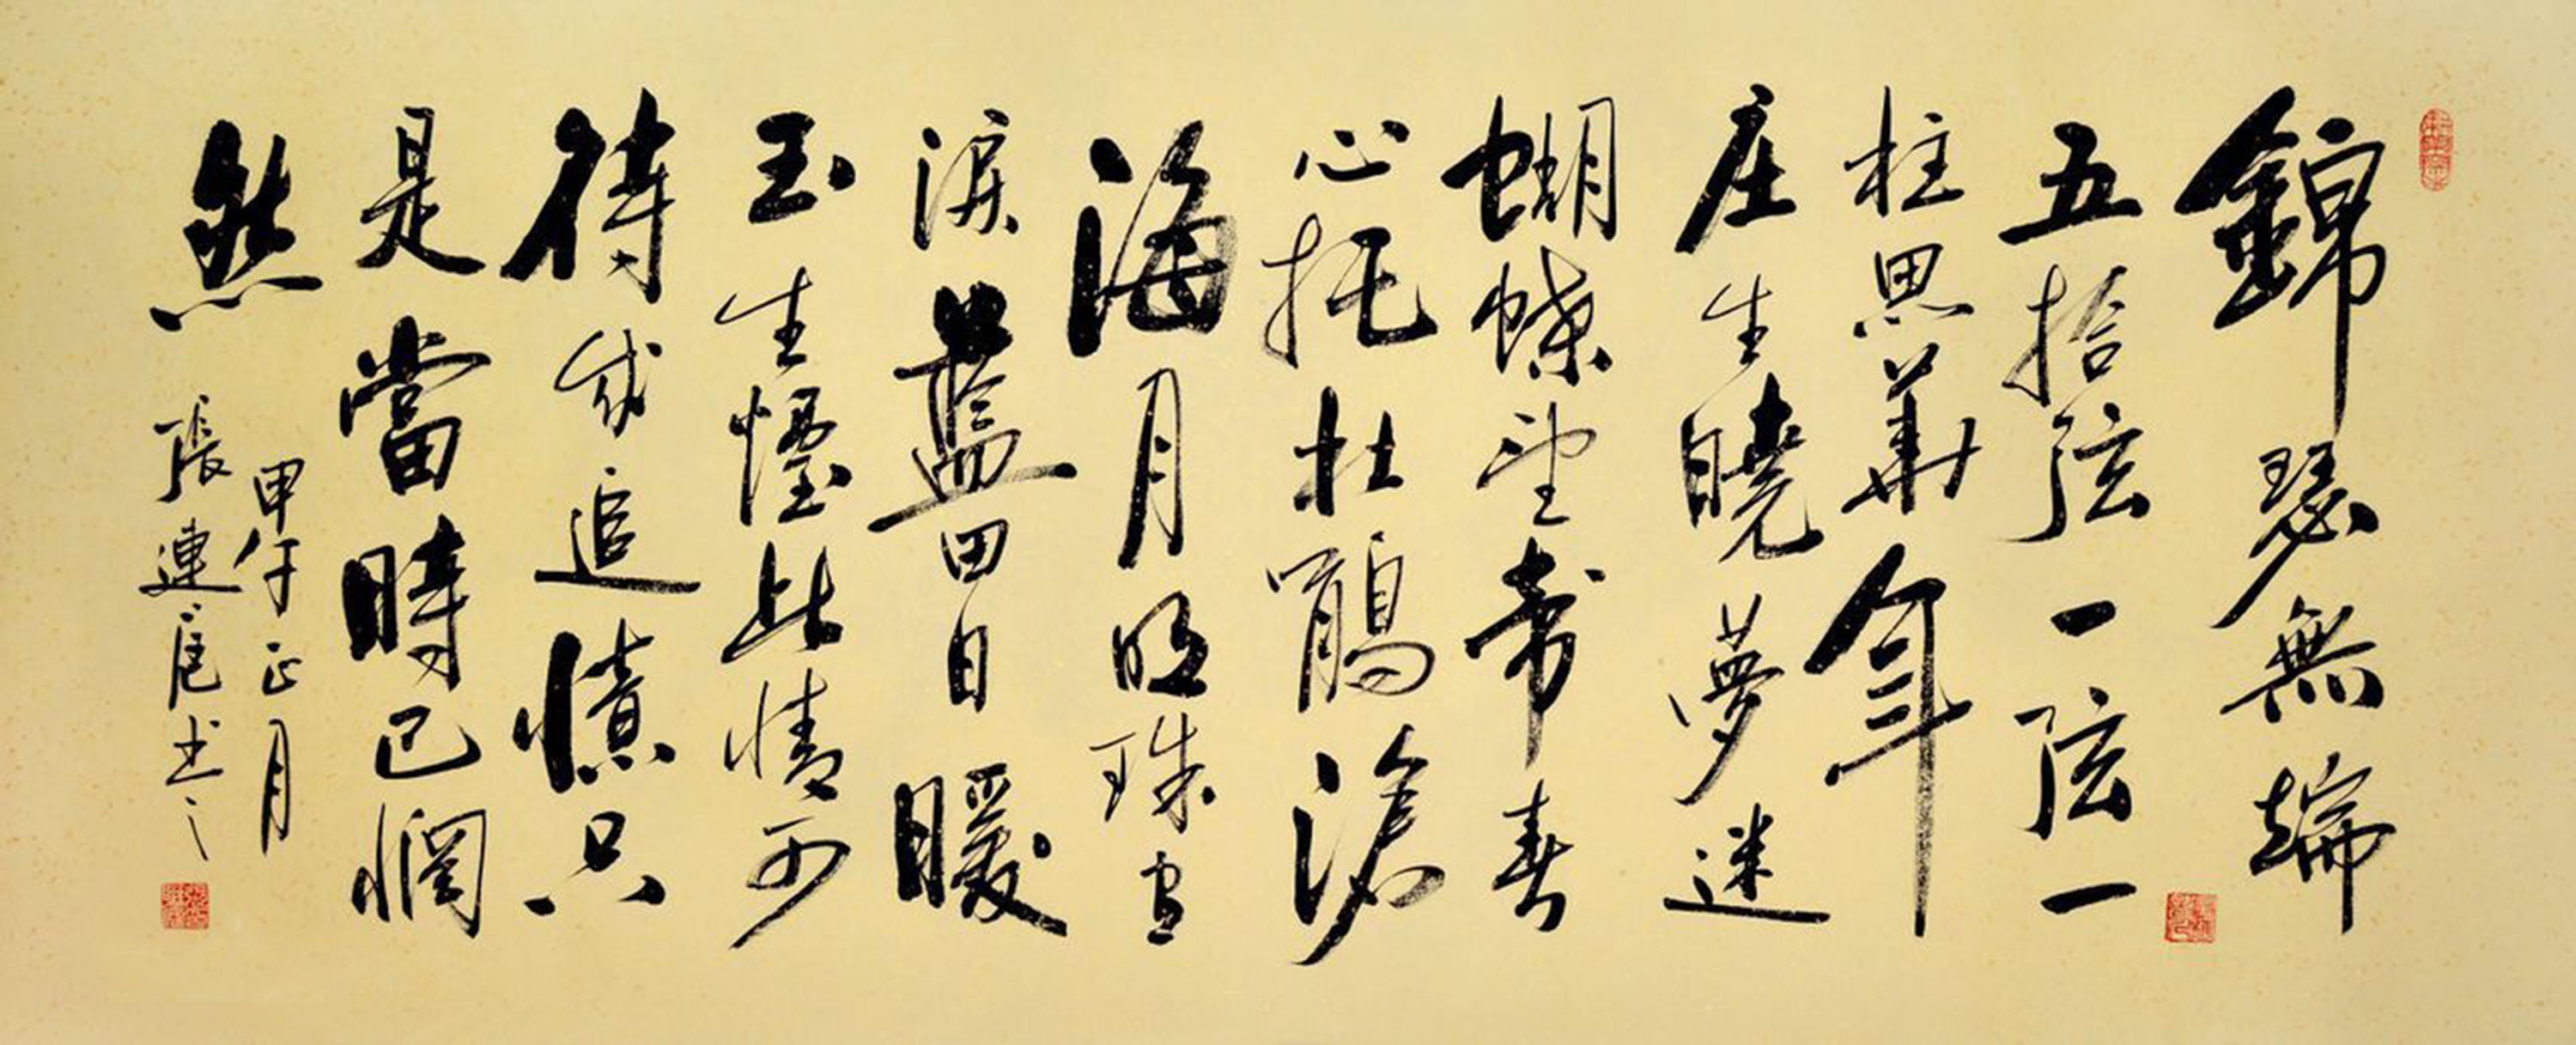 錦瑟無端
五拾弦一弦一
柱思華年
庄生曉夢迷
蝴蝶望帝春
心托杜鵑滄
海月明珠有
淚藍田日暖
玉生煙此情可
待成追憶只
是當時已惘
然
甲午正月
張連 書